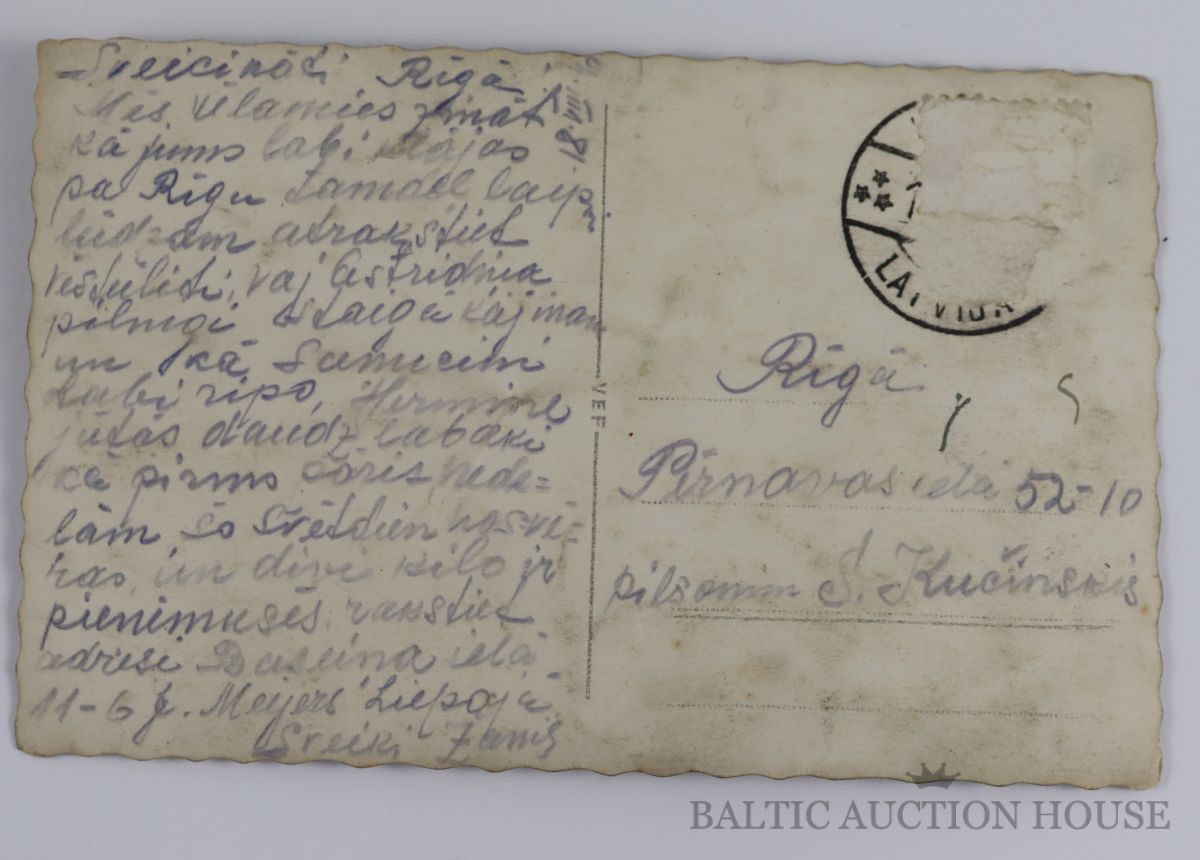 Sveicināti Rīgā!
Mēs vēlamies zināt
kā jums labi klājas
pa Rīgu tamdēļ laipni
lūdzam atrakstiet
vēstulīti, vaj Astridiņa
pilnīgi staigā kājinām
un kā
labi ripo, Hermine
jūtās daudz labāki
kā pirms nede=
lām šo svētdien nosvē=
ras, un divi kilo ir
pieņēmusēs rakstiet
adrese Baseina ielā
11-6 J. Meijers Liepājā
Sveiki
VEF
LATVIJA
Rīgā
Pērnavas ielā 52-10
pilsonim S. Kučinskis
BALTIC AUCTION HOUSE